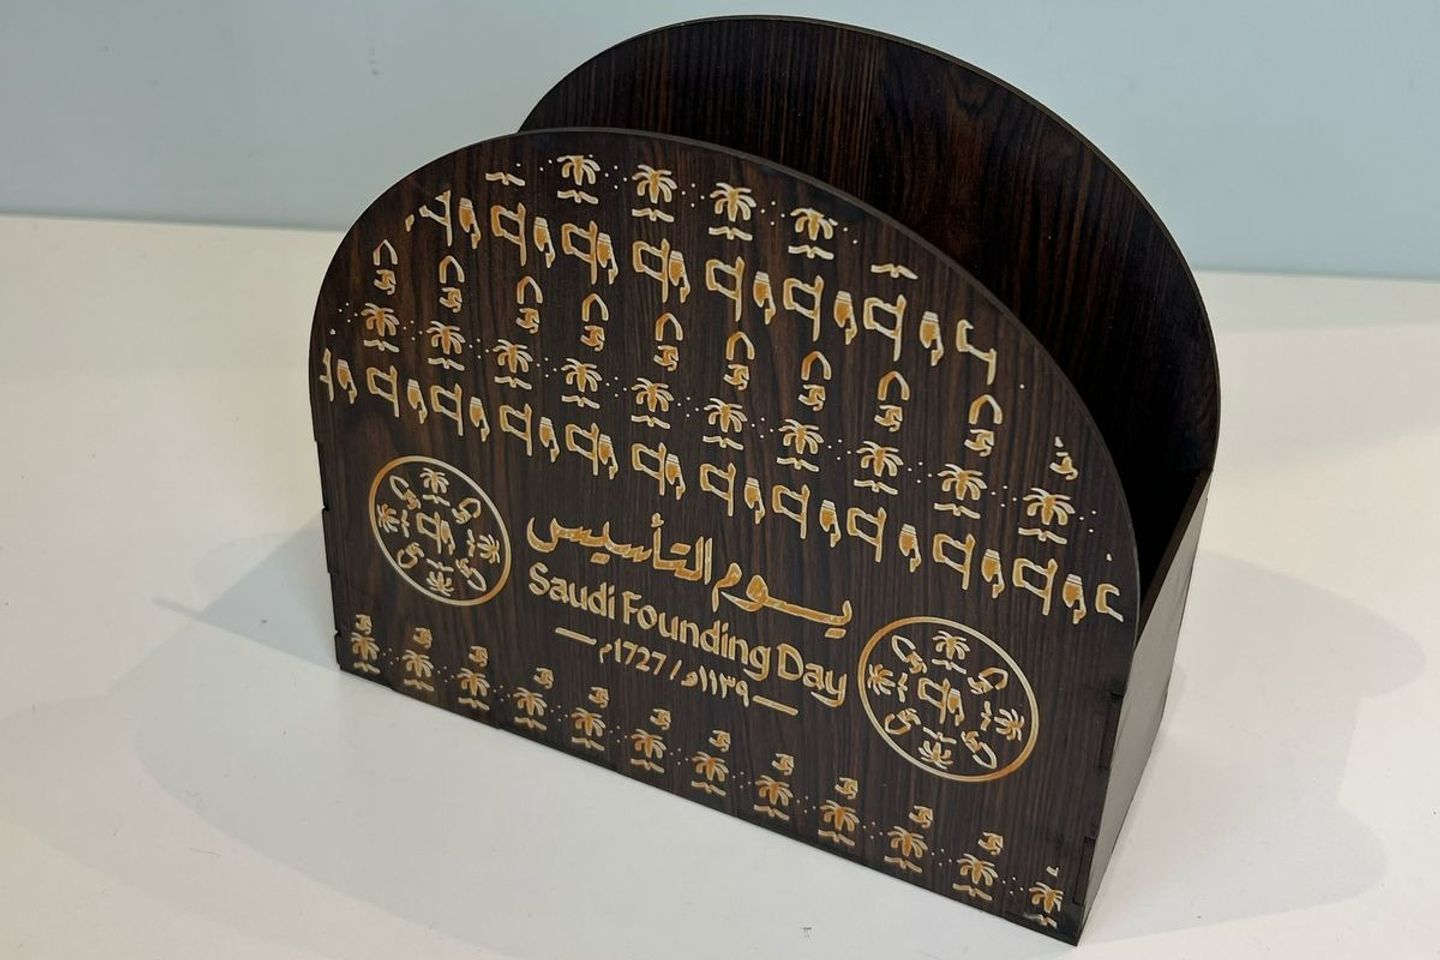 يــوم التأسيس
Saudi Founding Day
١١٣٩هـ / 1727م